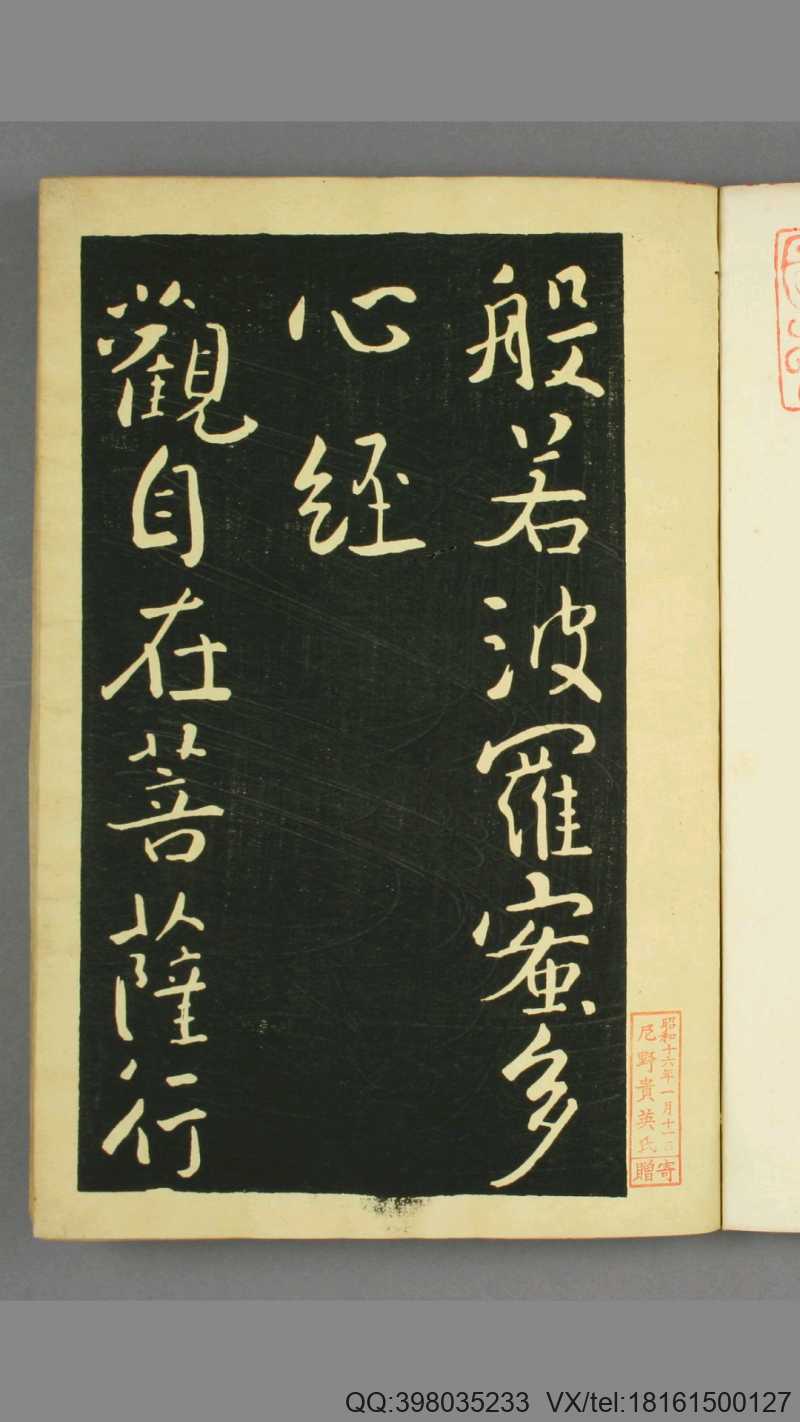 般若波羅蜜多
心経
觀自在菩薩行
昭和十六年一月十一日
尼野貴英氏
寄贈
QQ:398035233 VX/tel:18161500127